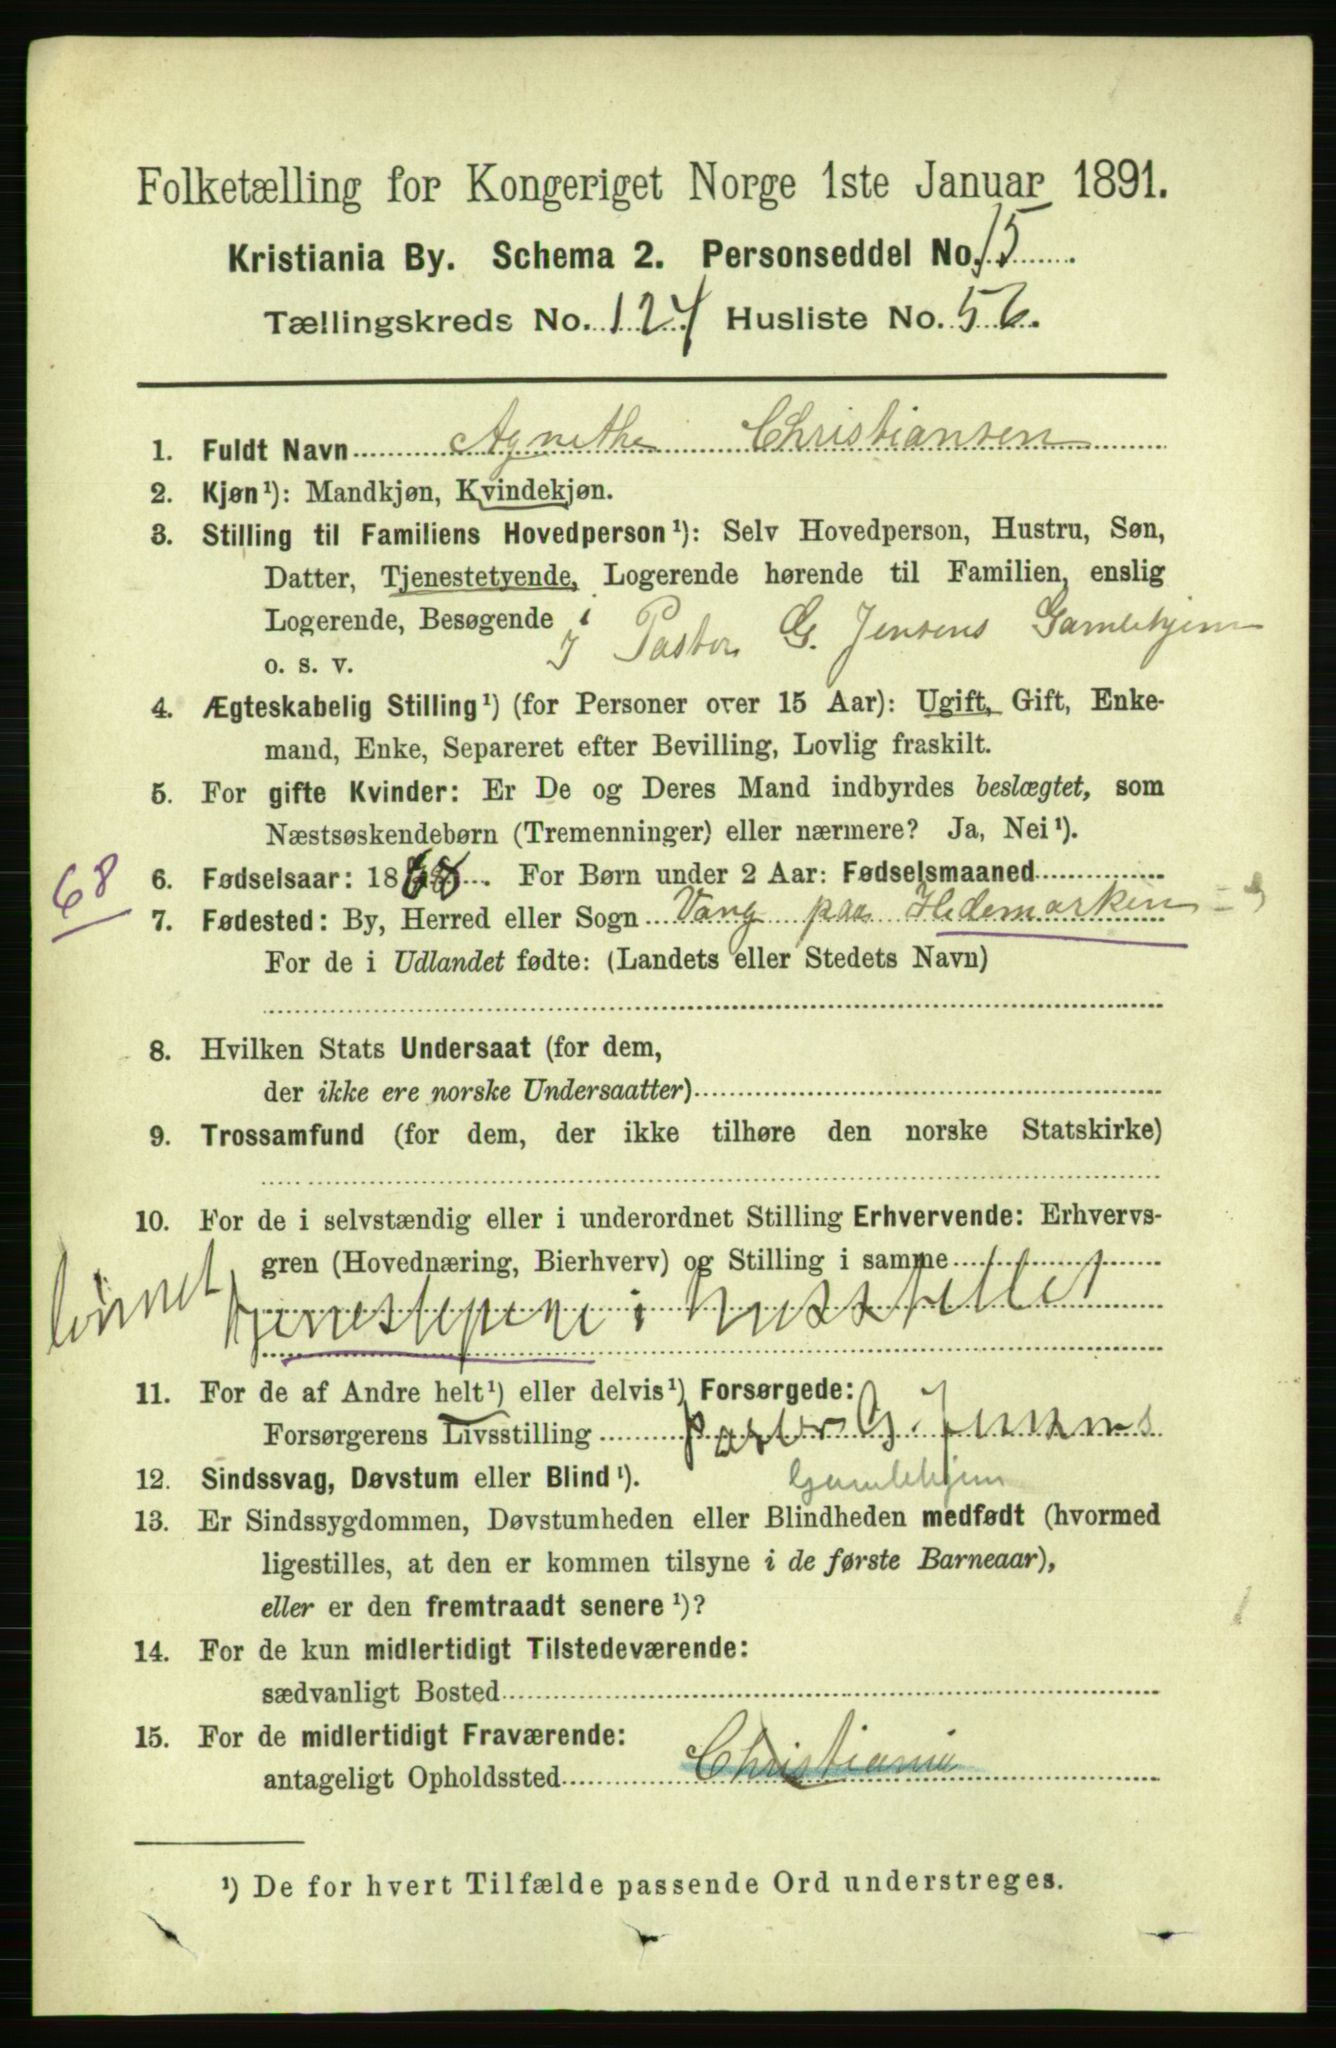 Folketælling for Kongeriget Norge 1ste Januar 1891.
Kristiania By. Schema 2. Personseddel No. 15
Tællingskreds No. 124 Husliste No. 56.
1. Fuldt Navn Agnethe Christiansen
2. Kjøn¹): Mandkjøn, Kvindekjøn.
3. Stilling til Familiens Hovedperson¹): Selv Hovedperson, Hustru, Søn,
Datter, Tjenestetyende, Logerende hørende til Familien, enslig
Logerende, Besøgende i
o. s. v. I Pastor G. Jensens Gamlehjem
4. Ægteskabelig Stilling¹) (for Personer over 15 Aar): Ugift, Gift, Enke-
mand, Enke, Separeret efter Bevilling, Lovlig fraskilt.
5. For gifte Kvinder: Er De og Deres Mand indbyrdes beslægtet, som
Næstsøskendebørn (Tremenninger) eller nærmere? Ja, Nei¹).
68 6. Fødselsaar: 1868. For Børn under 2 Aar: Fødselsmaaned
7. Fødested: By, Herred eller Sogn Vang paa Hedemarken
For de i Udlandet fødte: (Landets eller Stedets Navn)
8. Hvilken Stats Undersaat (for dem,
der ikke ere norske Undersaatter)
9. Trossamfund (for dem, der ikke tilhøre den norske Statskirke)
10. For de i selvstændig eller i underordnet Stilling Erhvervende: Erhvervs-
gren (Hovednæring, Bierhverv) og Stilling i samme
lønnet tjenestepige i husstellet
11. For de af Andre helt¹) eller delvis¹) Forsørgede:
Forsørgerens Livsstilling Pastor G. Jensens
12. Sindssvag, Døvstum eller Blind¹). Gamlehjem
13. Er Sindssygdommen, Døvstumheden eller Blindheden medfødt (hvormed
ligestilles, at den er kommen tilsyne i de første Barneaar),
eller er den fremtraadt senere¹)?
14. For de kun midlertidigt Tilstedeværende:
sædvanligt Bosted
15. For de midlertidigt Fraværende:
antageligt Opholdssted Christiania
¹) De for hvert Tilfælde passende Ord understreges.